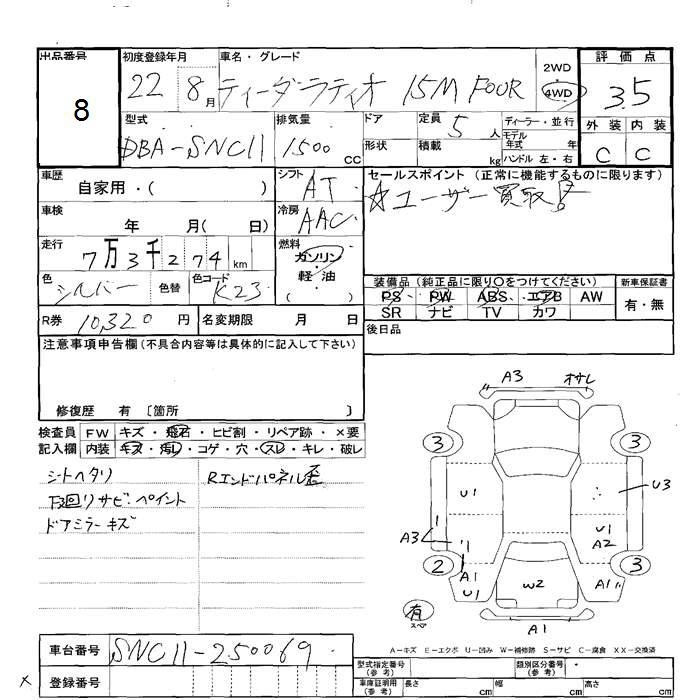 出品番号
8
初度登録年月
22 8月
車名・グレード
ティーダラティオ 15M FOUR
2WD
4WD
評価点
3.5
外装 内装
C C
型式
DBA-SNC11
排気量
1500 cc
ドア
形状
定員 5 人
積載 kg
ディーラー・並行
モデル
年式 年
ハンドル 左・右
車歴
自家用・( )
シフト AT
セールスポイント (正常に機能するものに限ります)
☆ユーザー買取り
車検
年 月( 日)
冷房 AAC
走行
7万3千274 km
燃料
ガソリン・
軽・油
( )
色 シルバー 色替 色コード K23
装備品 (純正品に限り○をつけてください)
新車保証書
PS PW ABS エアB AW
SR ナビ TV カワ
有・無
R券 10,320 円 名変期限 月 日
後日品
注意事項申告欄 (不具合内容等は具体的に記入して下さい)
修復歴 有 〔箇所 〕
検査員 FW キズ・飛石・ヒビ割・リペア跡・×要
記入欄 内装 キズ・汚レ・コゲ・穴・スレ・キレ・破レ
シートヘタリ
下回リサビ・ペイント
ドアミラーキズ
Rエンドパネル歪
A3 オサレ
3 3
U1 U3
A3 U1
A2
2 3
A1 A1
U1
W2
有
スペア
A1
A-キズ E-エクボ U-凹み W-補修跡 S-サビ C-腐食 XX-交換済
車台番号 SNC11-250069
登録番号
型式指定番号
(参考)
類別区分番号
(参考)
車庫証明用
(参考)
長さ cm 幅 cm 高さ cm